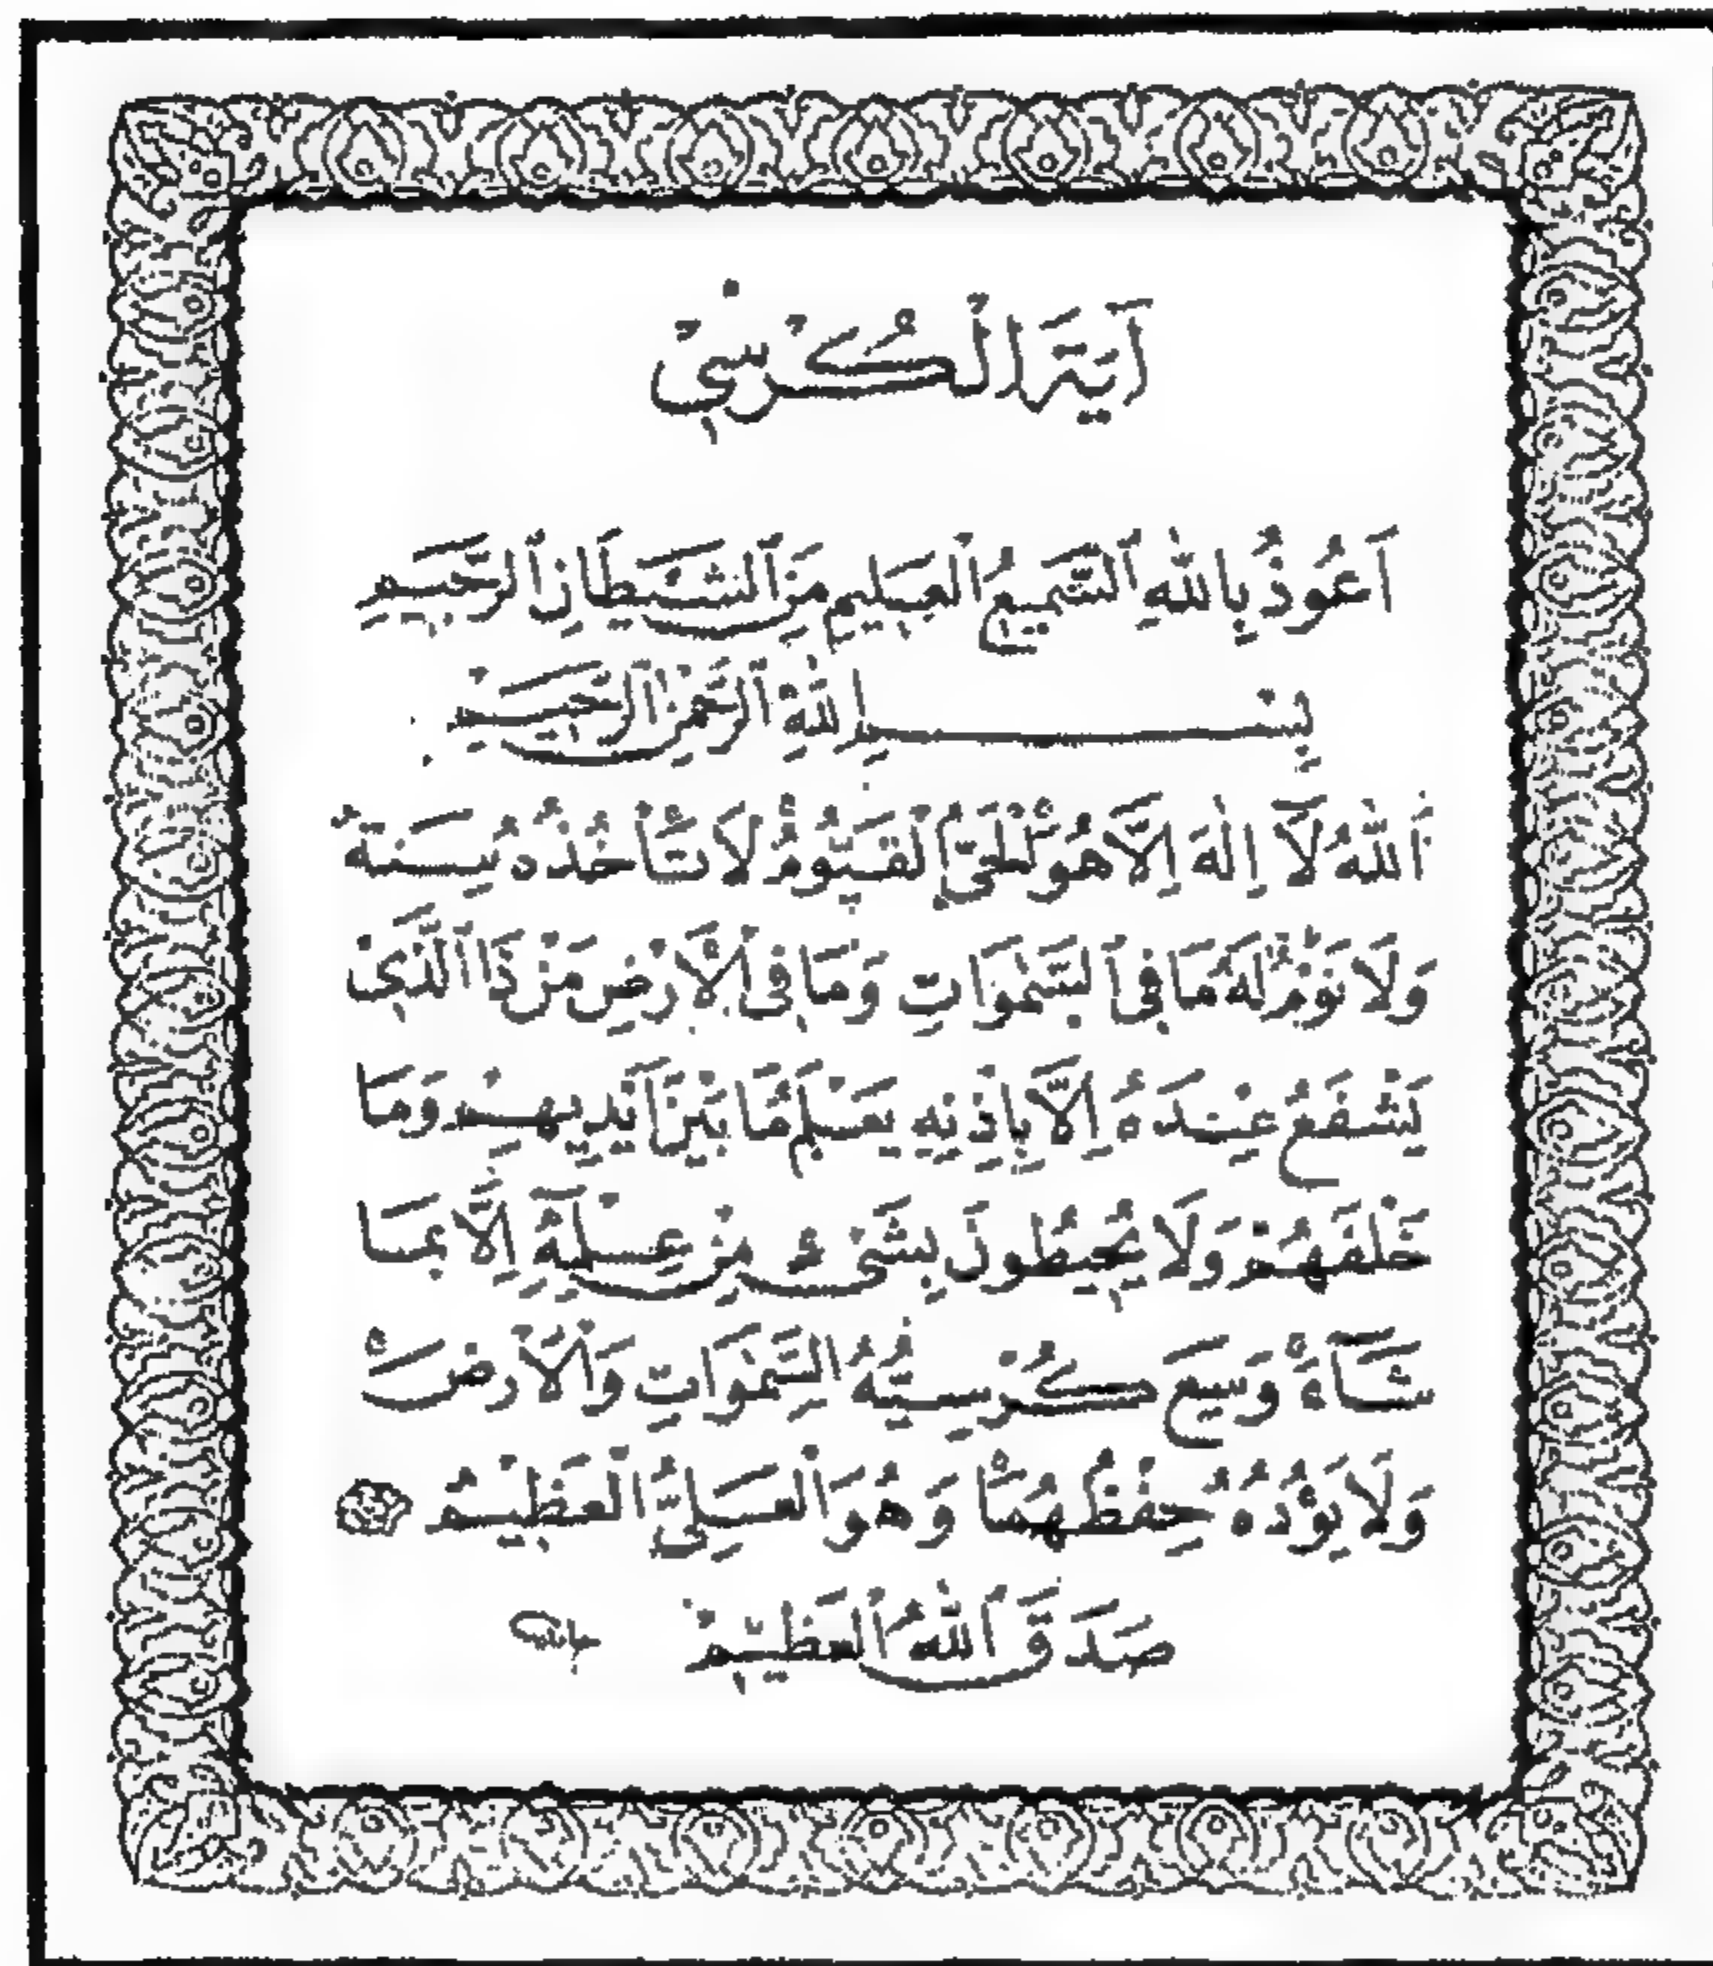 آيَةَ الْكُرْسِيْ
اَعُوذُ بِاللهِ ٱلسَّمِيعُ الْعَلِيمِ مِنَ ٱلشَّيْطَانِ ٱلرَّجِيمِ
بِسْمِ اللهِ ٱلرَّحْمٰنِ ٱلرَّحِيمِ
اَللهُ لَآ اِلٰهَ اِلَّا هُوَ ٱلْحَىُّ الْقَيُّومُ لَا تَأْخُذُهُ سِنَةٌ
وَلَا نَوْمٌ لَهُ مَا فِى ٱلسَّمٰوَاتِ وَمَا فِى ٱلْاَرْضِ مَنْ ذَا ٱلَّذِىْ
يَشْفَعُ عِنْدَهُ اِلَّا بِاِذْنِهِ يَعْلَمُ مَا بَيْنَ اَيْدِيهِمْ وَمَا
خَلْفَهُمْ وَلَا يُحِيطُونَ بِشَىْءٍ مِنْ عِلْمِهِ اِلَّا بِمَا
شَآءَ وَسِعَ كُرْسِيُّهُ السَّمٰوَاتِ وَالْاَرْضَ
وَلَا يَؤُدُهُ حِفْظُهُمَا وَهُوَ الْعَلِىُّ الْعَظِيْمُ
صَدَقَ ٱللهُ ٱلعَظِيْمْ